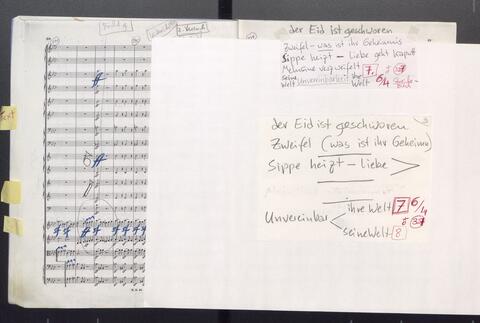 der Eid ist geschworen
Zweifel - was ist ihr Geheimnis
Sippe heizt - Liebe geht kaputt
Melusine verzweifelt 7.
seine Welt Unvereinbarkeit ihre Welt 6/4
der Eid ist geschworen
Zweifel (was ist ihr Geheimn)
Sippe heizt - liebe >
Unvereinbar < ihre Welt 7 6/4
seine Welt 8